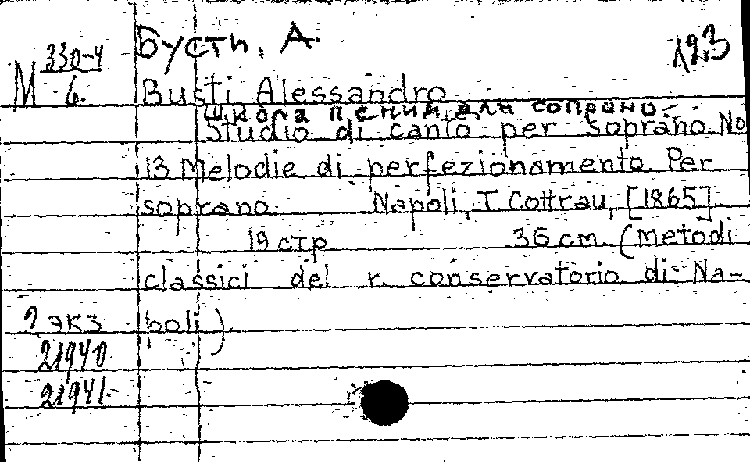 Бусти, А.
М 330-4
6.
Busti Alessandro
школа пения для сопрано
Studio di canto per soprano. No
13 Melodie di perfezionamento Per
soprano. Napoli, T. Cottrau, [1865]
19 стр 36 cm (Metodi
classici del r. conservatorio di Na-
2 экз poli)
21940
21941